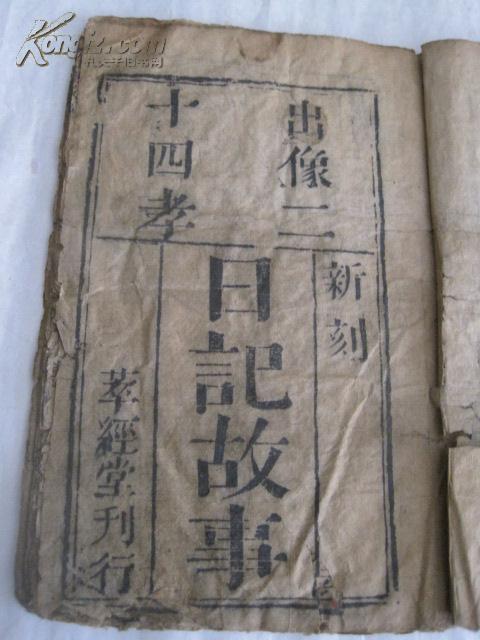 出像二
十四孝
新刻
日記故事
萃經堂刊行
Kongfz.com
孔夫子旧书网